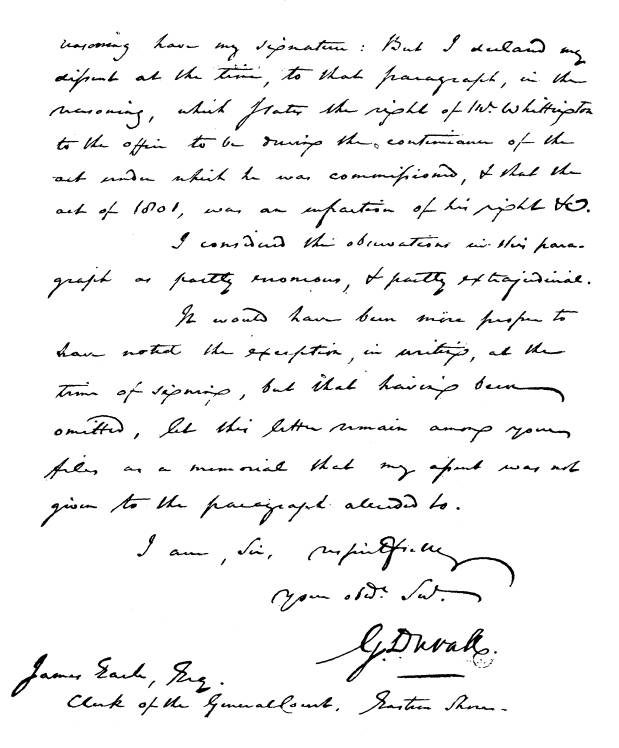 reasoning have my signature: But I declared my
dissent at the time, to that paragraph, in the
reasoning, which states the right of Mr. Whittington
to the office to be during the continuance of the
act under which he was commissioned, & that the
act of 1801, was an infraction of his right &c.
I considered the observations in this para-
graph as partly erroneous, & partly extrajudicial.
It would have been more proper to
have noted the exception, in writing, at the
time of signing, but that having been
omitted, let this letter remain among your
files as a memorial that my assent was not
given to the paragraph alluded to.
I am, Sir, respectfully
your obdt. Servt.
G. Duvall.
James Earle, Esq.
Clerk of the General Court, Eastern Shore.